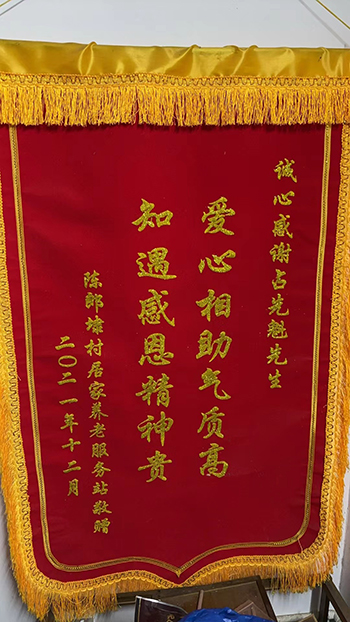 诚心感谢占先魁先生
爱心相助气质高
知遇感恩精神贵
陈郎墩村居家养老服务站敬赠
二〇二一年十二月